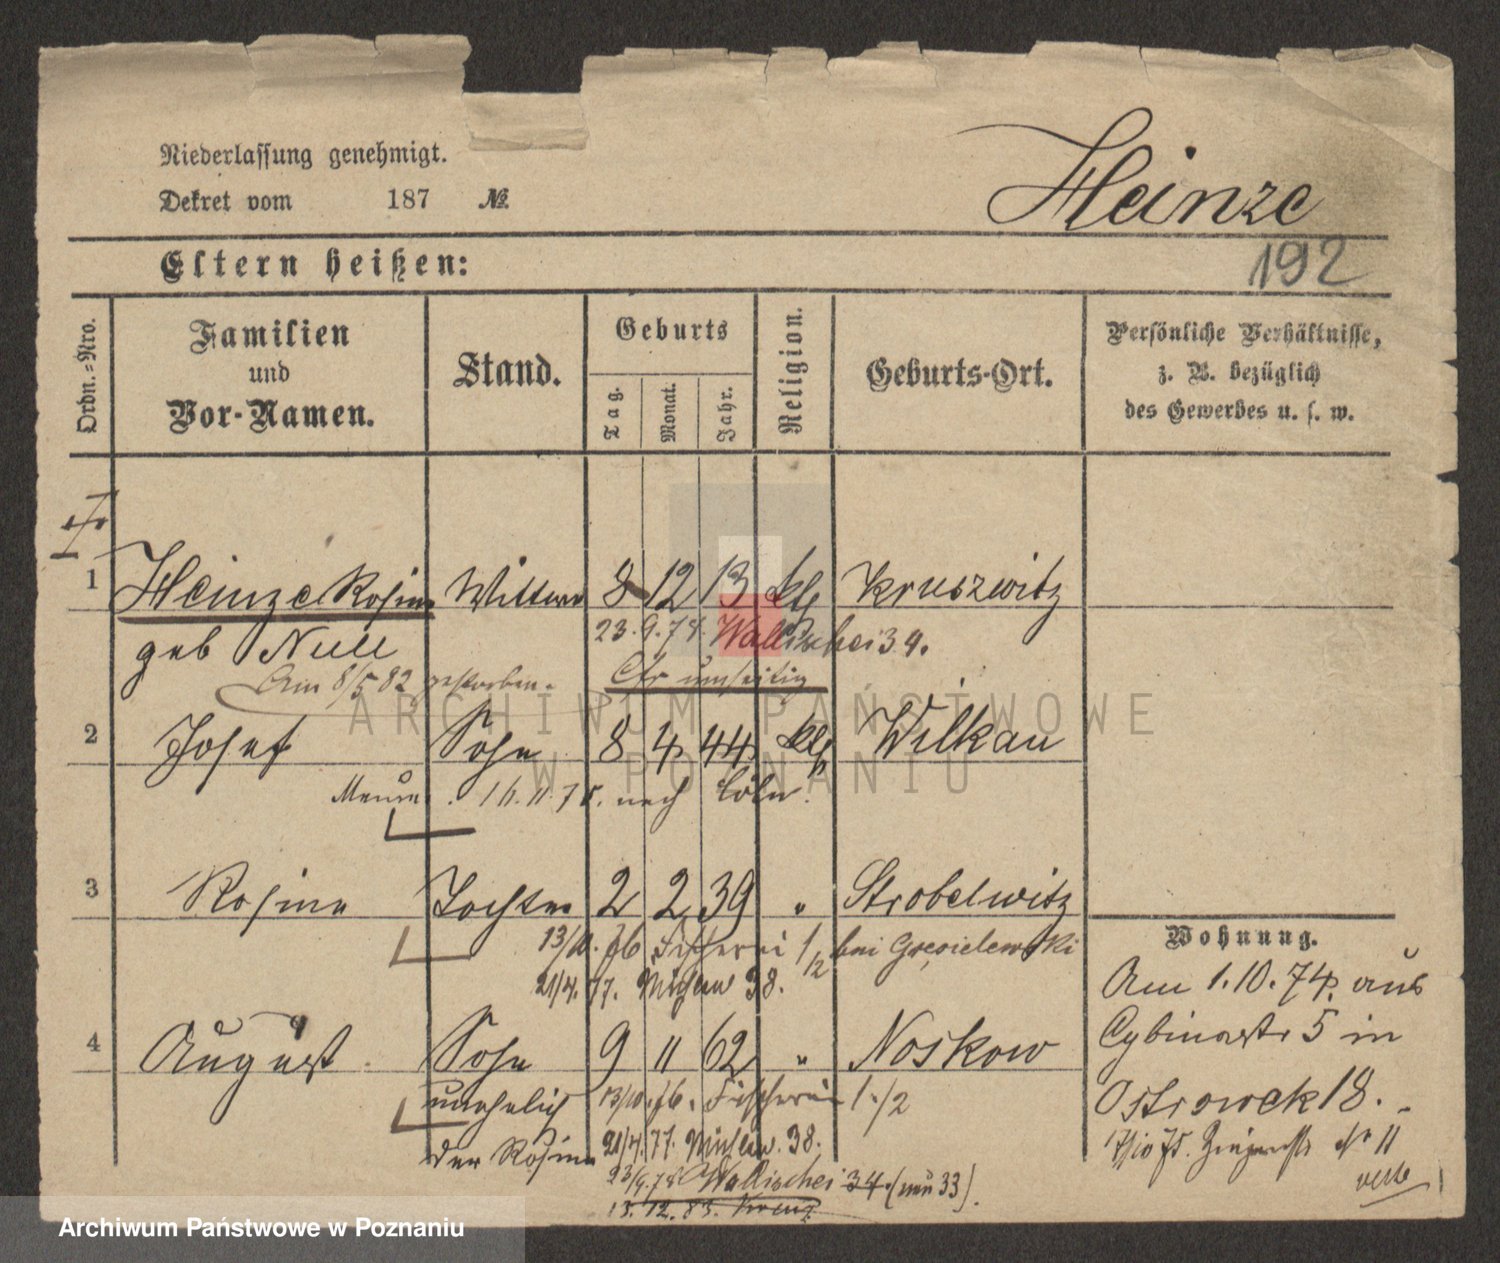 Niederlassung genehmigt.
Dekret vom 187 №
Heinze
192
Eltern heißen:
Ordn.-Nro.
Familien und Vor-Namen.
Stand.
Geburts
Tag.
Monat.
Jahr.
Religion.
Geburts-Ort.
Persönliche Verhältnisse,
z. B. bezüglich
des Gewerbes u. s. w.
1 Heinze Rosine Wittwe 8 12 13 kth Kruszwitz
geb Null 23.9.78. Wallischei 34.
Am 8/5 82 gestorben. Cfr umseitig
2 Josef Sohn 8 4 44 kth Wilkau
nach Cöln.
3 Rosine Tochter 2 2 39 " Strobelwitz
13/10. 76 Fischerei 1/2 bei
21/4. 77. 38.
4 August Sohn 9 11 62 " Noskow
unehelich 13/10. 76. Fischerei 1./2
der Rosine 21/4. 77. 38.
23/9. 78 Wallischei 34. (neu 33).
13. 12. 83.
Wohnung.
Am 1.10.74. aus
Cybinastr 5 in
Ostrowek 18.
№ 11
ARCHIWUM PAŃSTWOWE
W POZNANIU
Archiwum Państwowe w Poznaniu